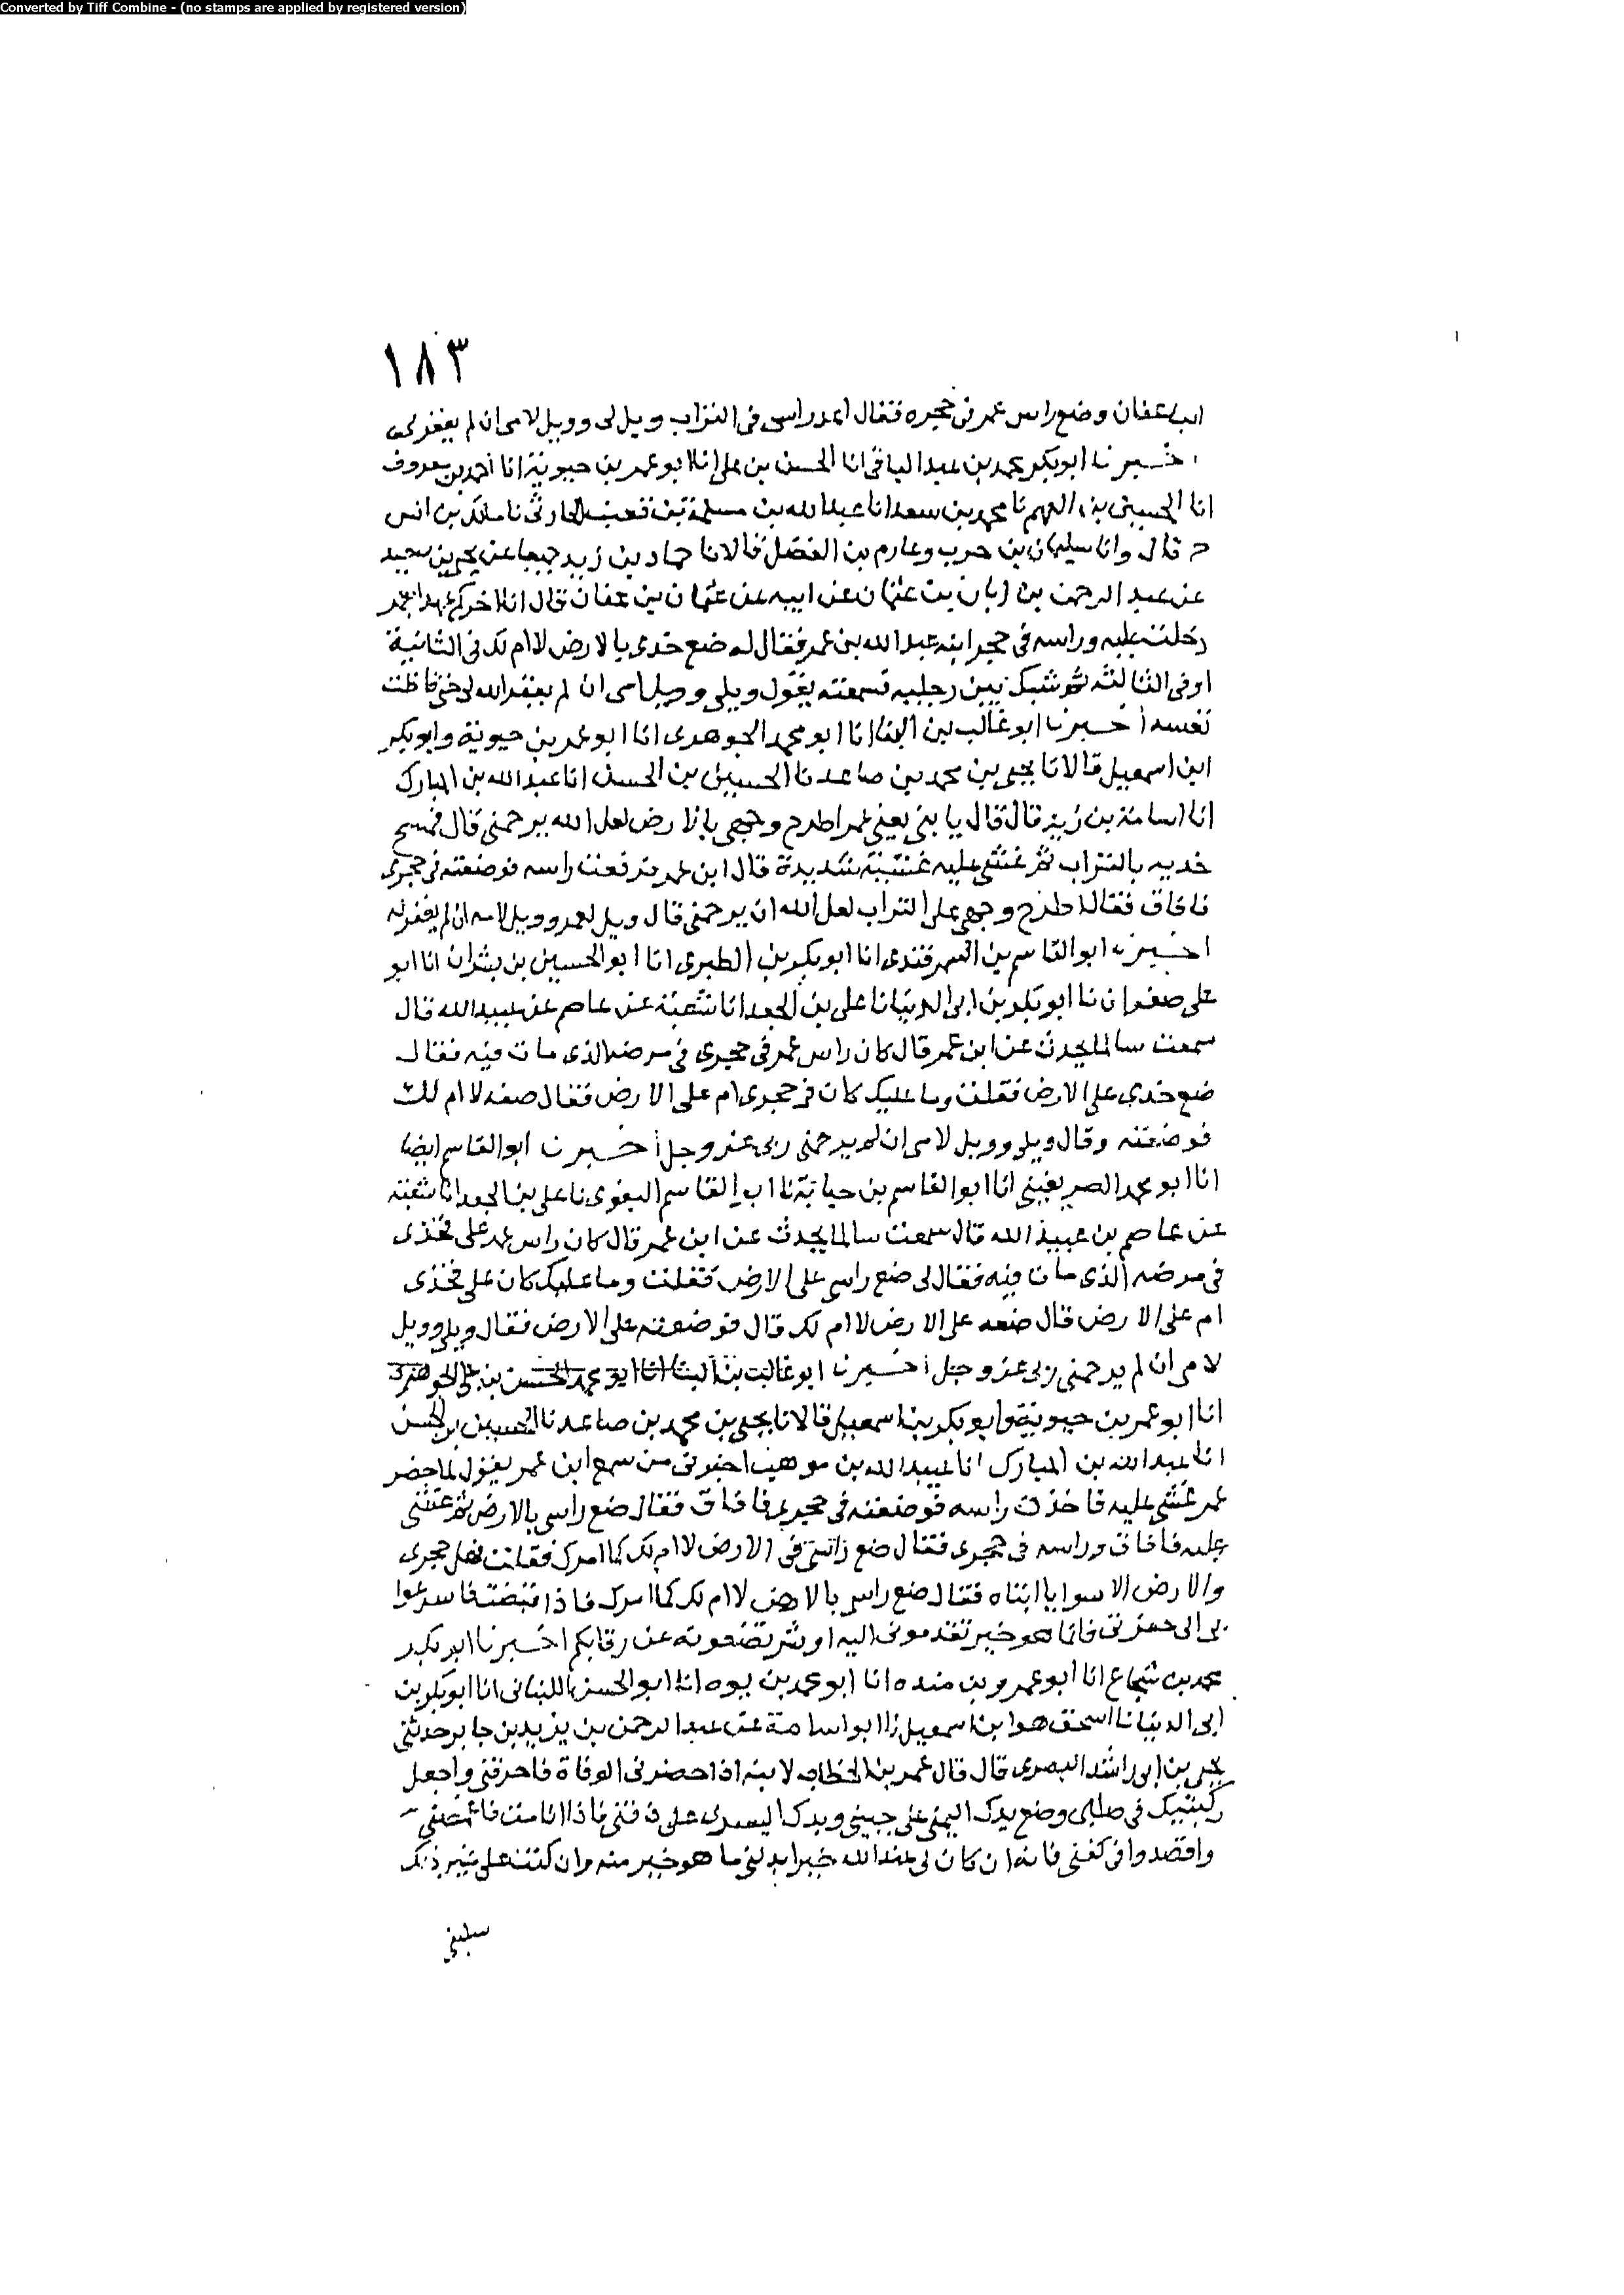 Converted by Tiff Combine - (no stamps are applied by registered version)
١٨٣
ابن عفان وضع راس عمر في حجره فقال اعد راسي في التراب ويل لي وويل لامي ان لم يغفر لي
اخبرنا ابو بكر محمد بن عبد الباقي انا الحسن بن علي انا ابو عمر بن حيوية انا احمد بن معروف
انا الحسين بن الفهم نا محمد بن سعد انا عبد الله بن مسلمة بن قعنب الحارثي نا مالك بن انس
ح قال وانا سليمان بن حرب وعارم بن الفضل قالا نا حماد بن زيد جميعا عن يحيى بن سعيد
عن عبد الرحمن بن ابان بن عثمان عن ابيه عن عثمان بن عفان قال انا اخركم عهدا بعمر
دخلت عليه وراسه في حجر ابنه عبد الله بن عمر فقال له ضع خدي بالارض لا ام لك في الثانية
او في الثالثة ثم شبك بين رجليه فسمعته يقول ويلي وويل امي ان لم يغفر الله لي حتى فاظت
نفسه اخبرنا ابو غالب بن البنا انا ابو محمد الجوهري انا ابو عمر بن حيوية وابو بكر
ابن اسمعيل قالا نا يحيى بن محمد بن صاعد نا الحسين بن الحسن انا عبد الله بن المبارك
انا اسامة بن زيد قال قال يا بني يعني عمر اطرح وجهي بالارض لعل الله يرحمني قال فمسح
خديه بالتراب ثم غشي عليه غشية شديدة قال ابن عمر فرفعت راسه فوضعته في حجري
فافاق فقال اطرح وجهي على التراب لعل الله ان يرحمني قال ويل لعمر وويل لامه ان لم يغفر له
اخبرنا ابو القاسم بن السمرقندي انا ابو بكر بن الطبري انا ابو الحسين بن بشران انا ابو
علي صفوان نا ابو بكر بن ابي الدنيا نا علي بن الجعد انا شعبة عن عاصم عن عبيد الله قال
سمعت سالما يحدث عن ابن عمر قال كان راس عمر في حجري في مرضه الذي مات فيه فقال
ضع خدي على الارض فقلت وما عليك كان في حجري ام على الارض فقال ضعه لا ام لك
فوضعته وقال ويلي وويل لامي ان لم يرحمني ربي عز وجل اخبرنا ابو القاسم ايضا
انا ابو محمد الصريفيني انا ابو القاسم بن حبابة نا ابو القاسم البغوي نا علي بن الجعد انا شعبة
عن عاصم بن عبيد الله قال سمعت سالما يحدث عن ابن عمر قال كان راس عمر على فخذي
في مرضه الذي مات فيه فقال لي ضع راسي على الارض فقلت وما عليك كان على فخذي
ام على الارض قال ضعه على الارض لا ام لك قال فوضعته على الارض فقال ويلي وويل
لامي ان لم يرحمني ربي عز وجل اخبرنا ابو غالب بن البنا انا ابو محمد الحسن بن علي الجوهري
انا ابو عمر بن حيوية وابو بكر بن اسمعيل قالا نا يحيى بن محمد بن صاعد نا الحسين بن الحسن
انا عبد الله بن المبارك انا عبيد الله بن موهب اخبرني من سمع ابن عمر يقول لما حضر
عمر غشي عليه فاخذت راسه فوضعته في حجري فافاق فقال ضع راسي بالارض ثم غشي
عليه فافاق وراسه في حجري فقال ضع راسي في الارض لا ام لك كما امرك فقلت فهل حجري
والارض الا سوا يا ابتاه فقال ضع راسي بالارض لا ام لك كما امرك فاذا قبضت فاسرعوا
بي الى حفرتي فانما هو خير تقدموني اليه او شر تضعونه عن رقابكم اخبرنا ابو بكر
محمد بن شجاع انا ابو عمرو بن منده انا ابو محمد بن يوه انا ابو الحسن اللنباني انا ابو بكر بن
ابي الدنيا نا اسحق هو ابن اسمعيل نا ابو اسامة عن عبد الرحمن بن يزيد بن جابر حدثني
يحيى بن ابي راشد البصري قال قال عمر بن الخطاب لابنه اذا حضرني الوفاة فاحرفني واجعل
ركبتيك في صلبي وضع يدك اليمنى على جبيني ويدك اليسرى على ذقني فاذا انا مت فاغمضني
واقصدوا في كفني فانه ان كان لي عند الله خير ابدلني ما هو خير منه وان كنت على غير ذلك
سلبني